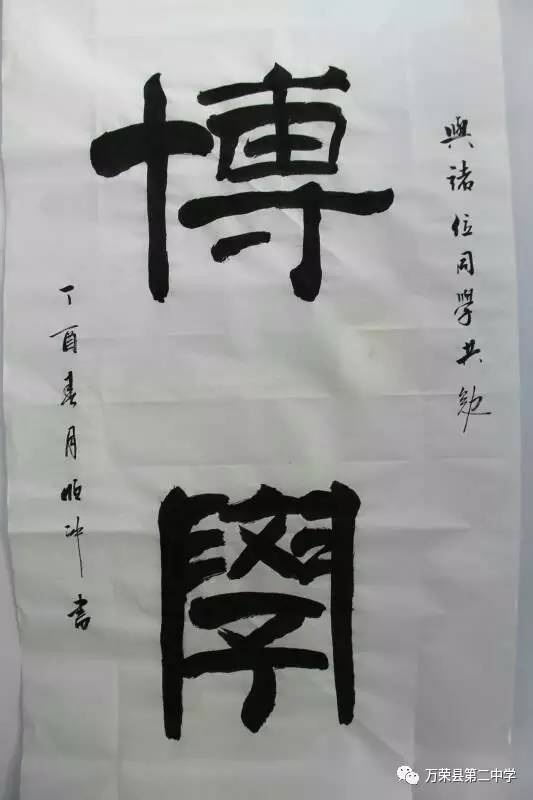 與諸位同學共勉
博
學
丁酉春月順冲書
万荣县第二中学